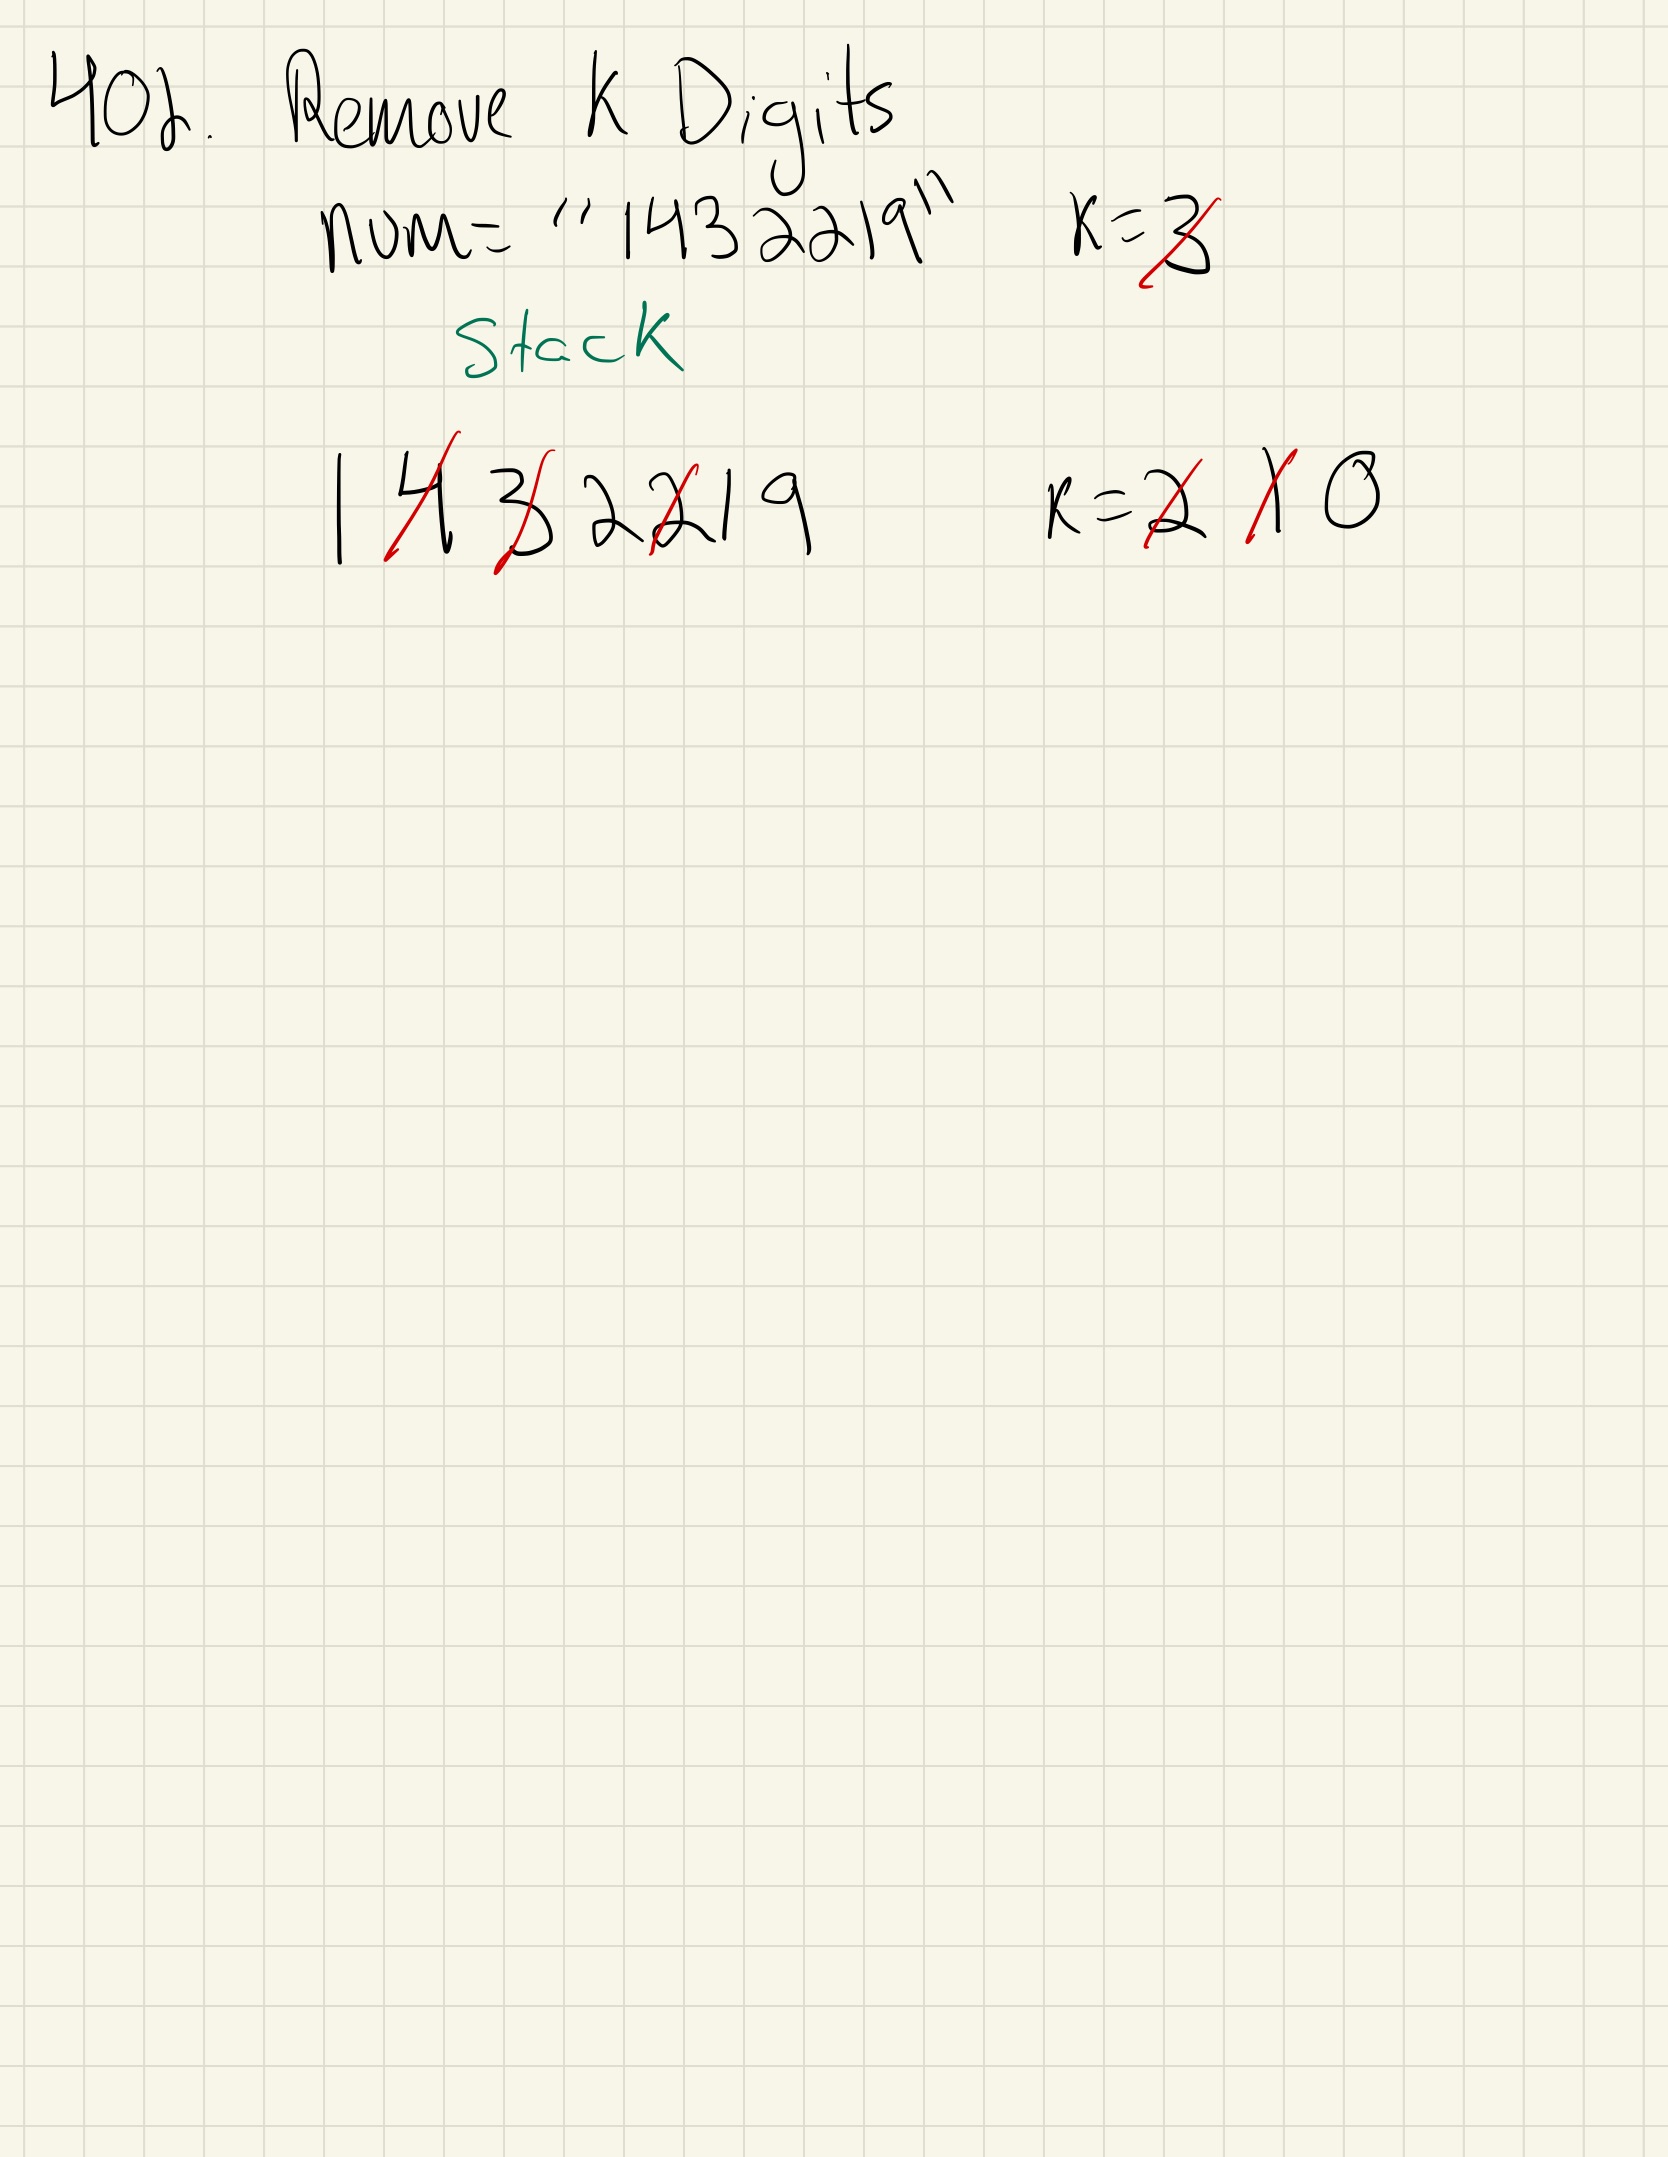 402. Remove K Digits
num = "1432219" K=3
Stack
1432219 K=2 1 0